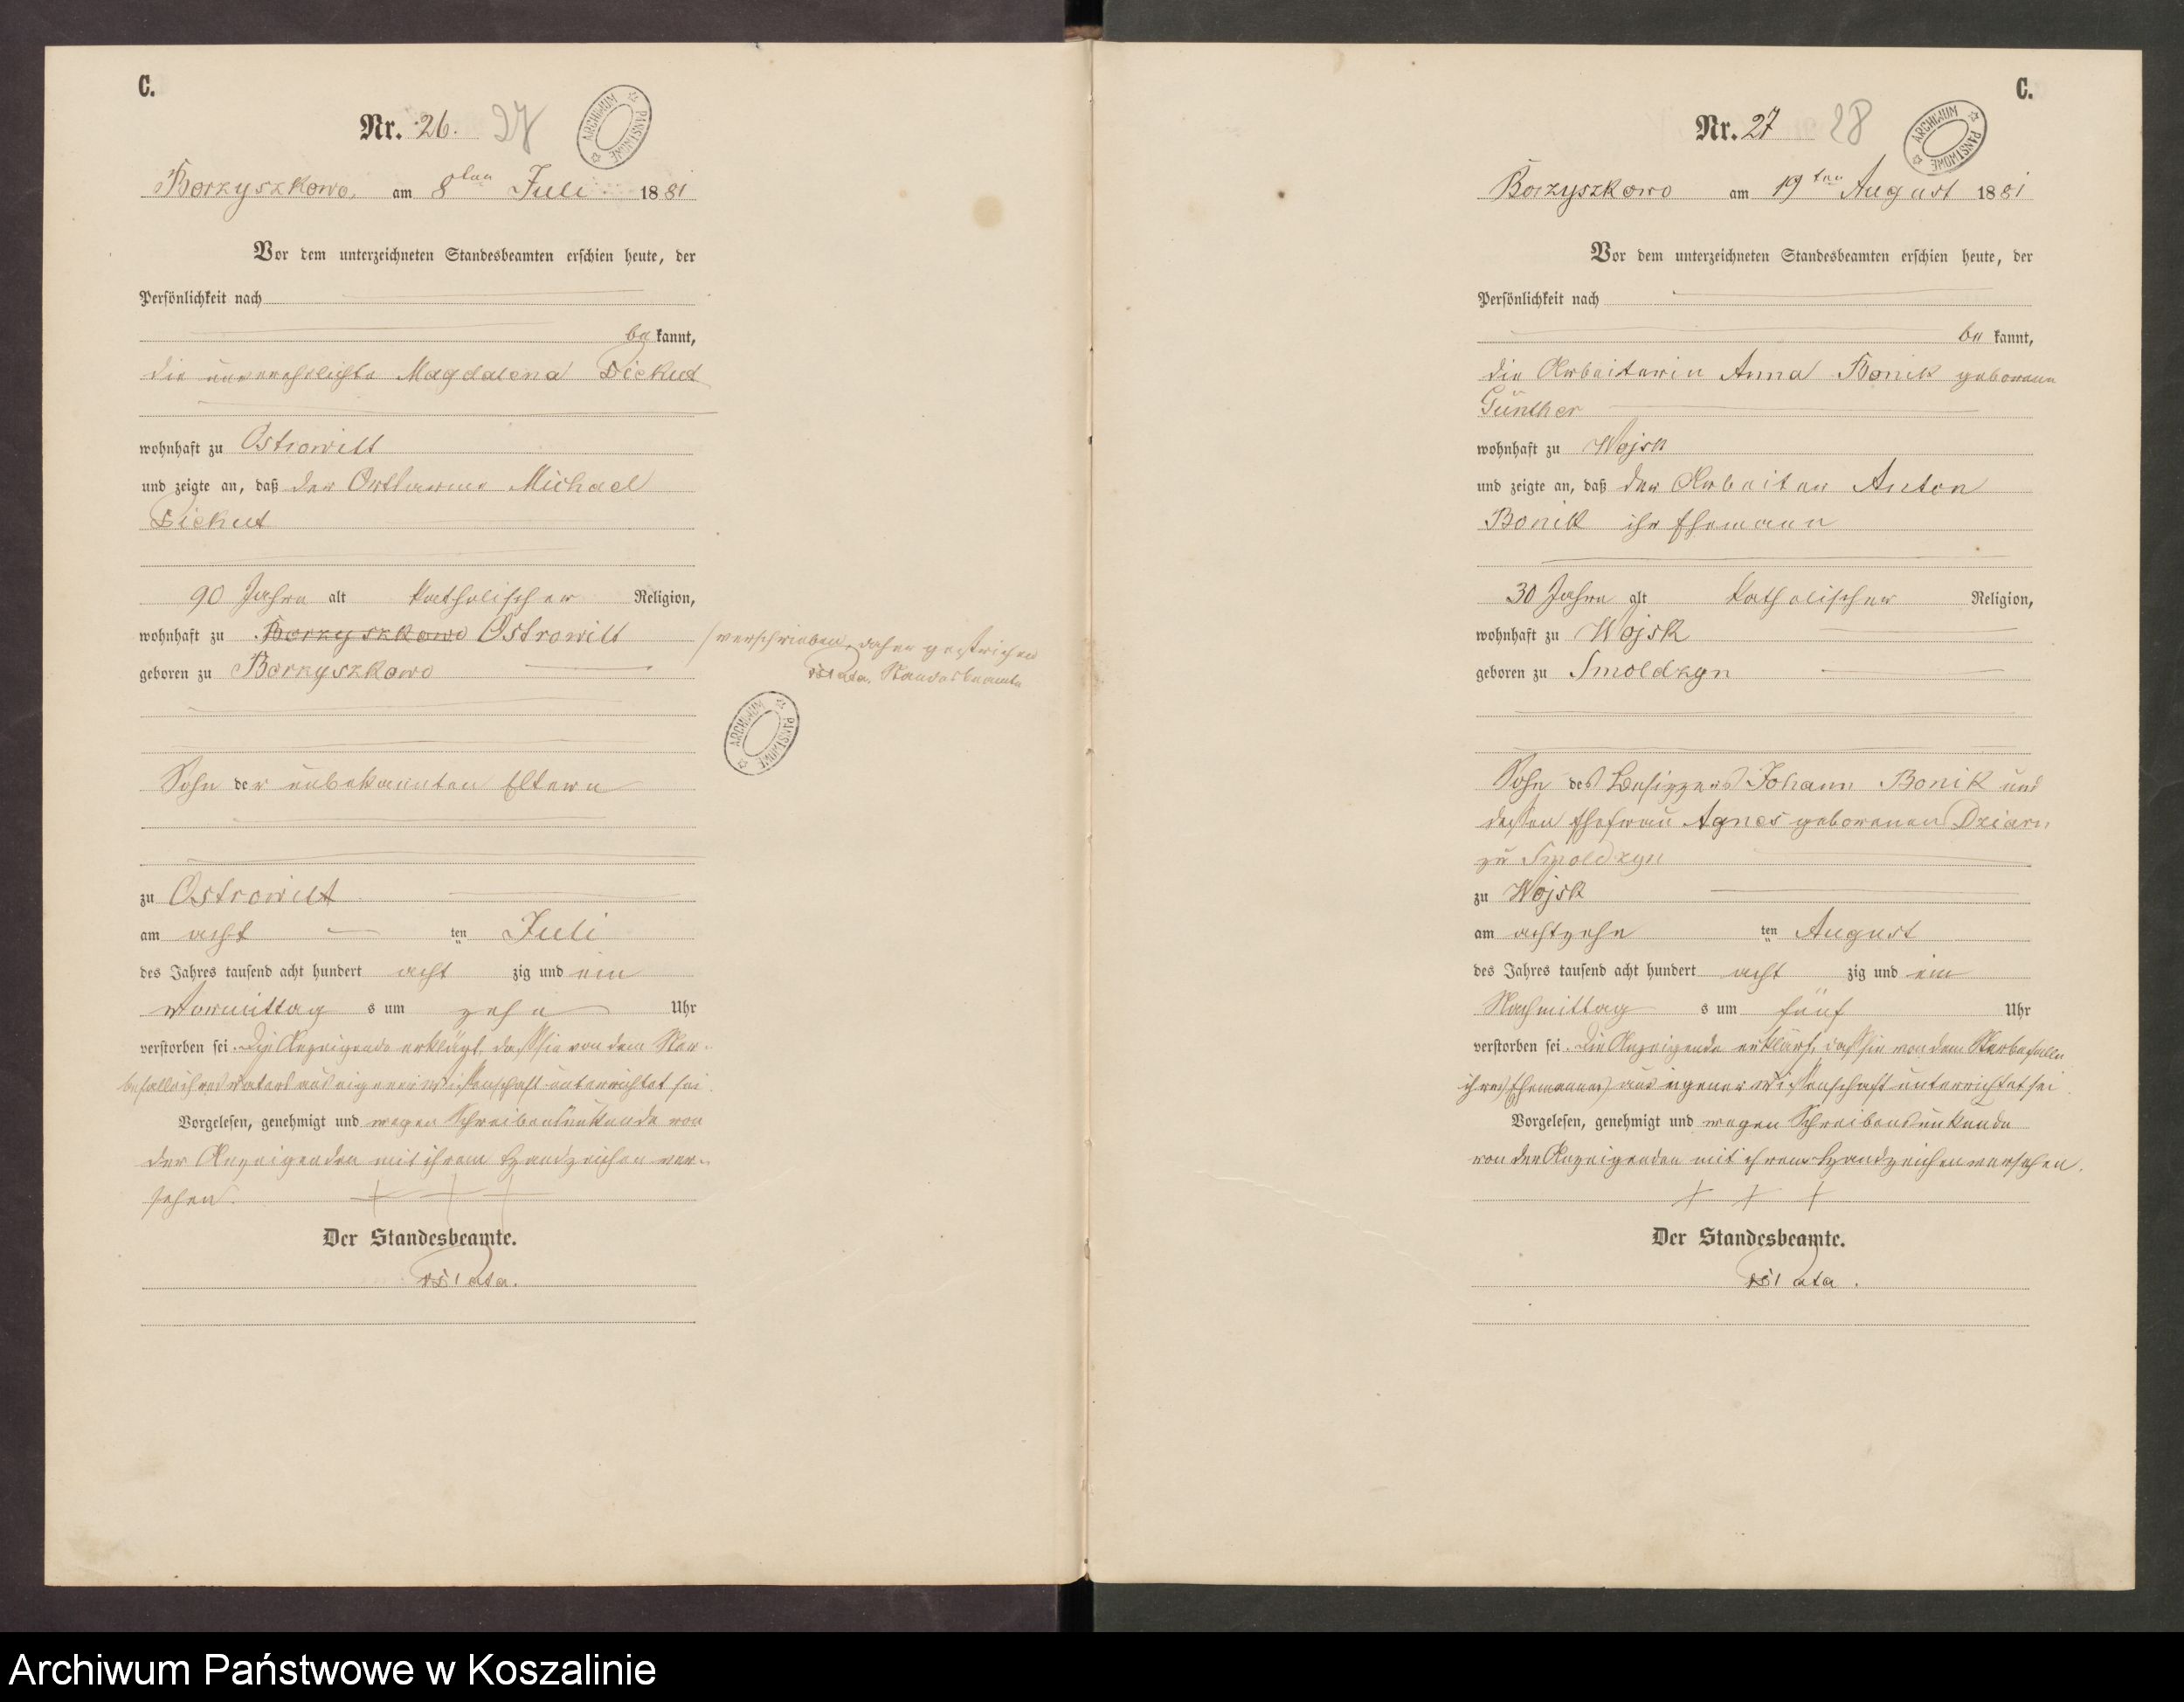 C.
Nr. 26. 27
ARCHIWUM PAŃSTWOWE
Borzyszkowo, am 8ten Juli 1881
Vor dem unterzeichneten Standesbeamten erschien heute, der
Persönlichkeit nach
be kannt,
die unverehelichte Magdalena
wohnhaft zu Ostrowitt
und zeigte an, daß der Ortsarme Michael
90 Jahre alt katholischer Religion,
wohnhaft zu Borzyszkowo Ostrowitt
geboren zu Borzyszkowo
Sohn der unbekannten Eltern
zu Ostrowitt
am acht ten Juli
des Jahres tausend acht hundert acht zig und ein
Vormittag s um zehn Uhr
verstorben sei. Die Anzeigende erklärt, daß sie von dem Ster-
befalle ihres Vaters aus eigener Wissenschaft unterrichtet sei.
Vorgelesen, genehmigt und wegen Schreibensunkunde von
der Anzeigenden mit ihrem Handzeichen ver-
sehen. + + +
Der Standesbeamte.
/ verschrieben, daher gestrichen
Standesbeamte
ARCHIWUM PAŃSTWOWE
C.
Nr. 27 28
ARCHIWUM PAŃSTWOWE
Borzyszkowo am 19ten August 1881
Vor dem unterzeichneten Standesbeamten erschien heute, der
Persönlichkeit nach
be kannt,
die Arbeiterin Anna Bonik geborene
Günther
wohnhaft zu Wojsk
und zeigte an, daß der Arbeiter Anton
Bonik ihr Ehemann
30 Jahre alt katholischer Religion,
wohnhaft zu Wojsk
geboren zu Smoldzyn
Sohn des Besitzers Johann Bonik und
dessen Ehefrau Agnes geborenen
zu Smoldzyn
zu Wojsk
am achtzehn ten August
des Jahres tausend acht hundert acht zig und ein
Nachmittag s um fünf Uhr
verstorben sei. Die Anzeigende erklärt, daß sie von dem Sterbefalle
ihres Ehemannes aus eigener Wissenschaft unterrichtet sei.
Vorgelesen, genehmigt und wegen Schreibensunkunde
von der Anzeigenden mit ihrem Handzeichen versehen.
+ + +
Der Standesbeamte.
Archiwum Państwowe w Koszalinie